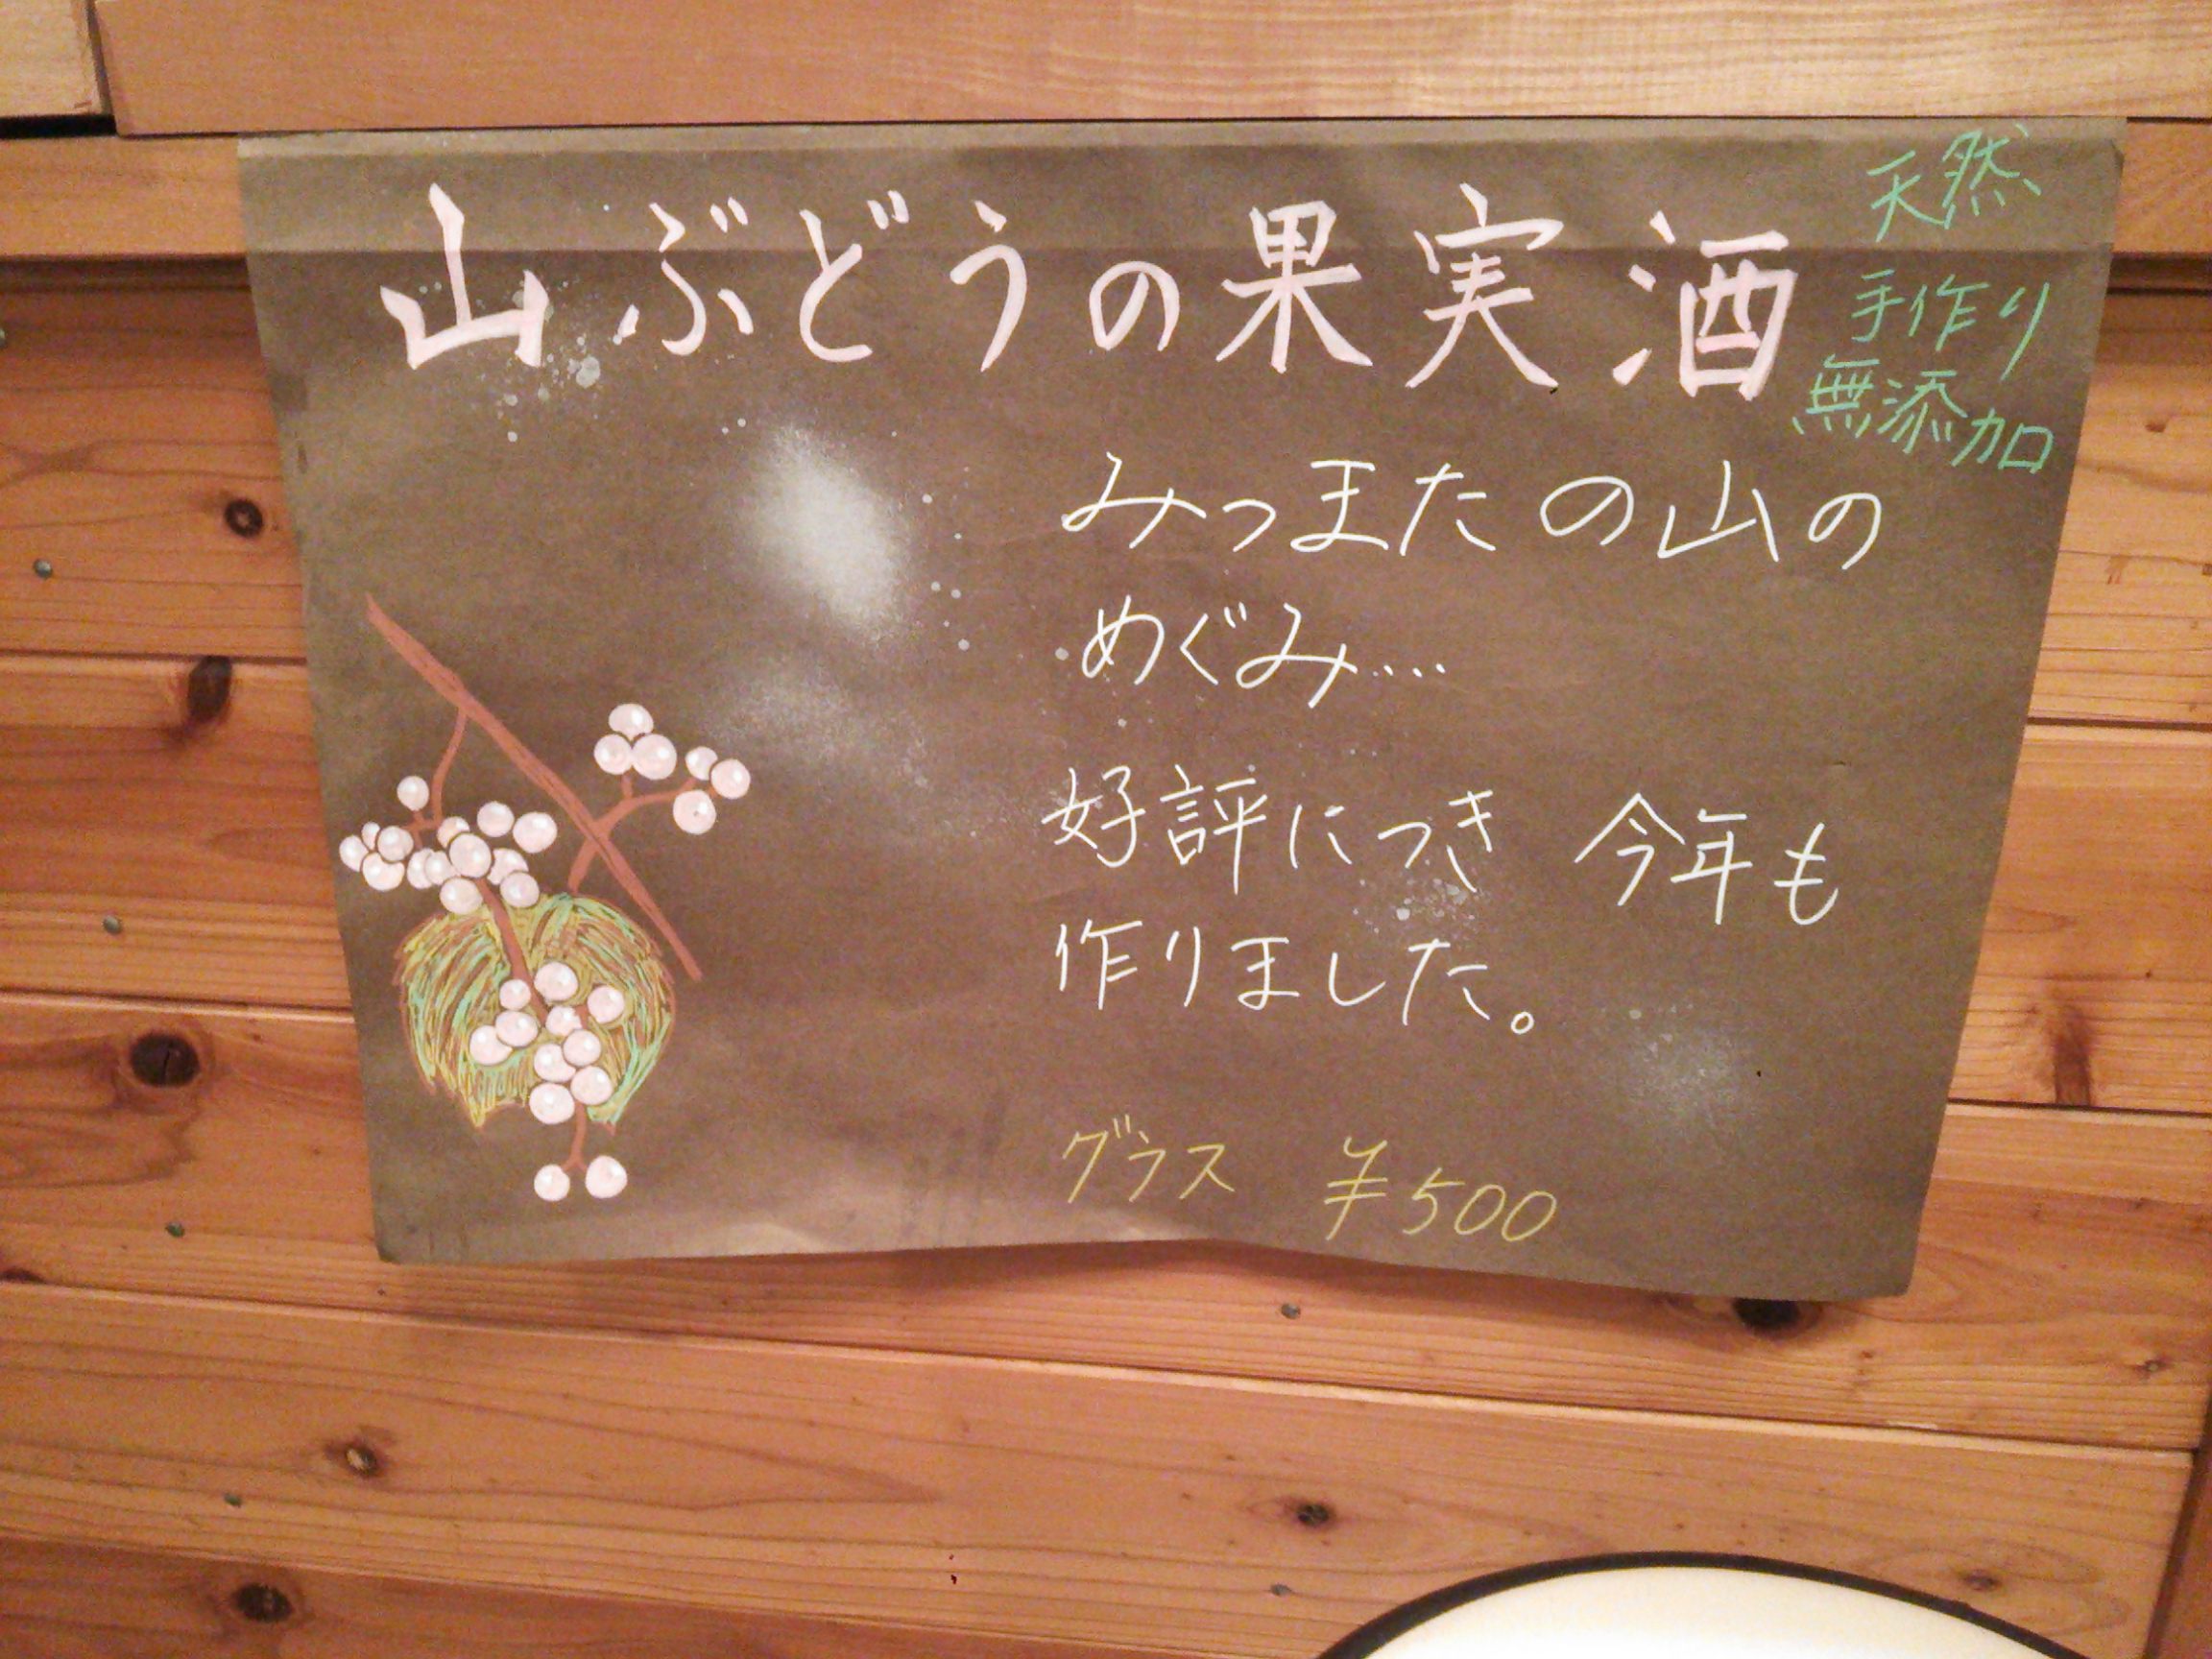 山ぶどうの果実酒
天然
手作り
無添加
みつまたの山の
めぐみ....
好評につき 今年も
作りました。
グラス ¥500